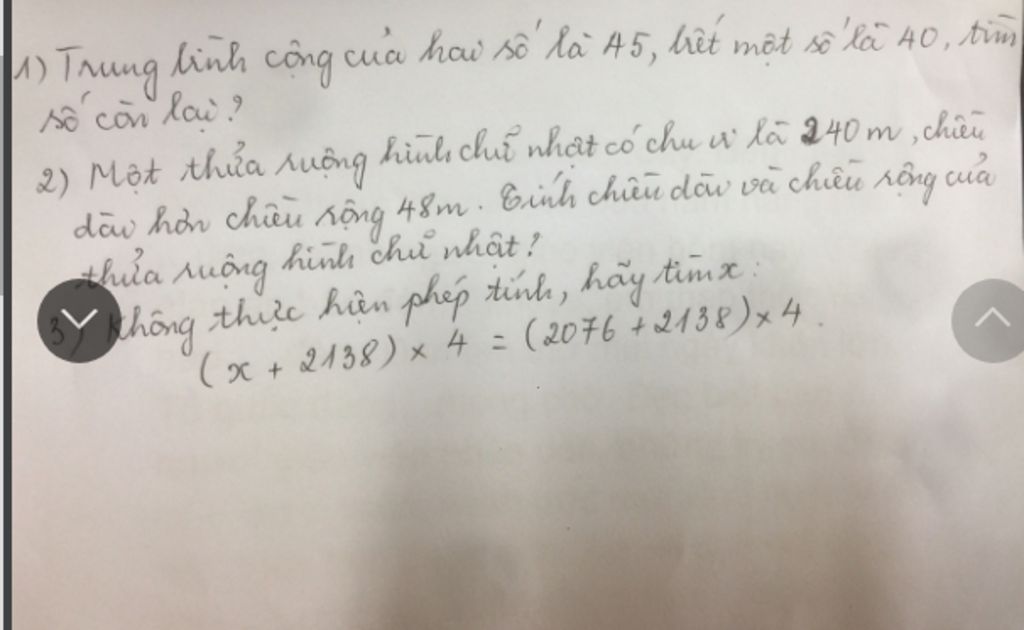 1) Trung bình cộng của hai số là 45, biết một số là 40, tìm
số còn lại?
2) Một thửa ruộng hình chữ nhật có chu vi là 240m, chiều
dài hơn chiều rộng 48m. Tính chiều dài và chiều rộng của
thửa ruộng hình chữ nhật?
3) Không thực hiện phép tính, hãy tìm x:
(x + 2138) × 4 = (2076 + 2138) × 4.